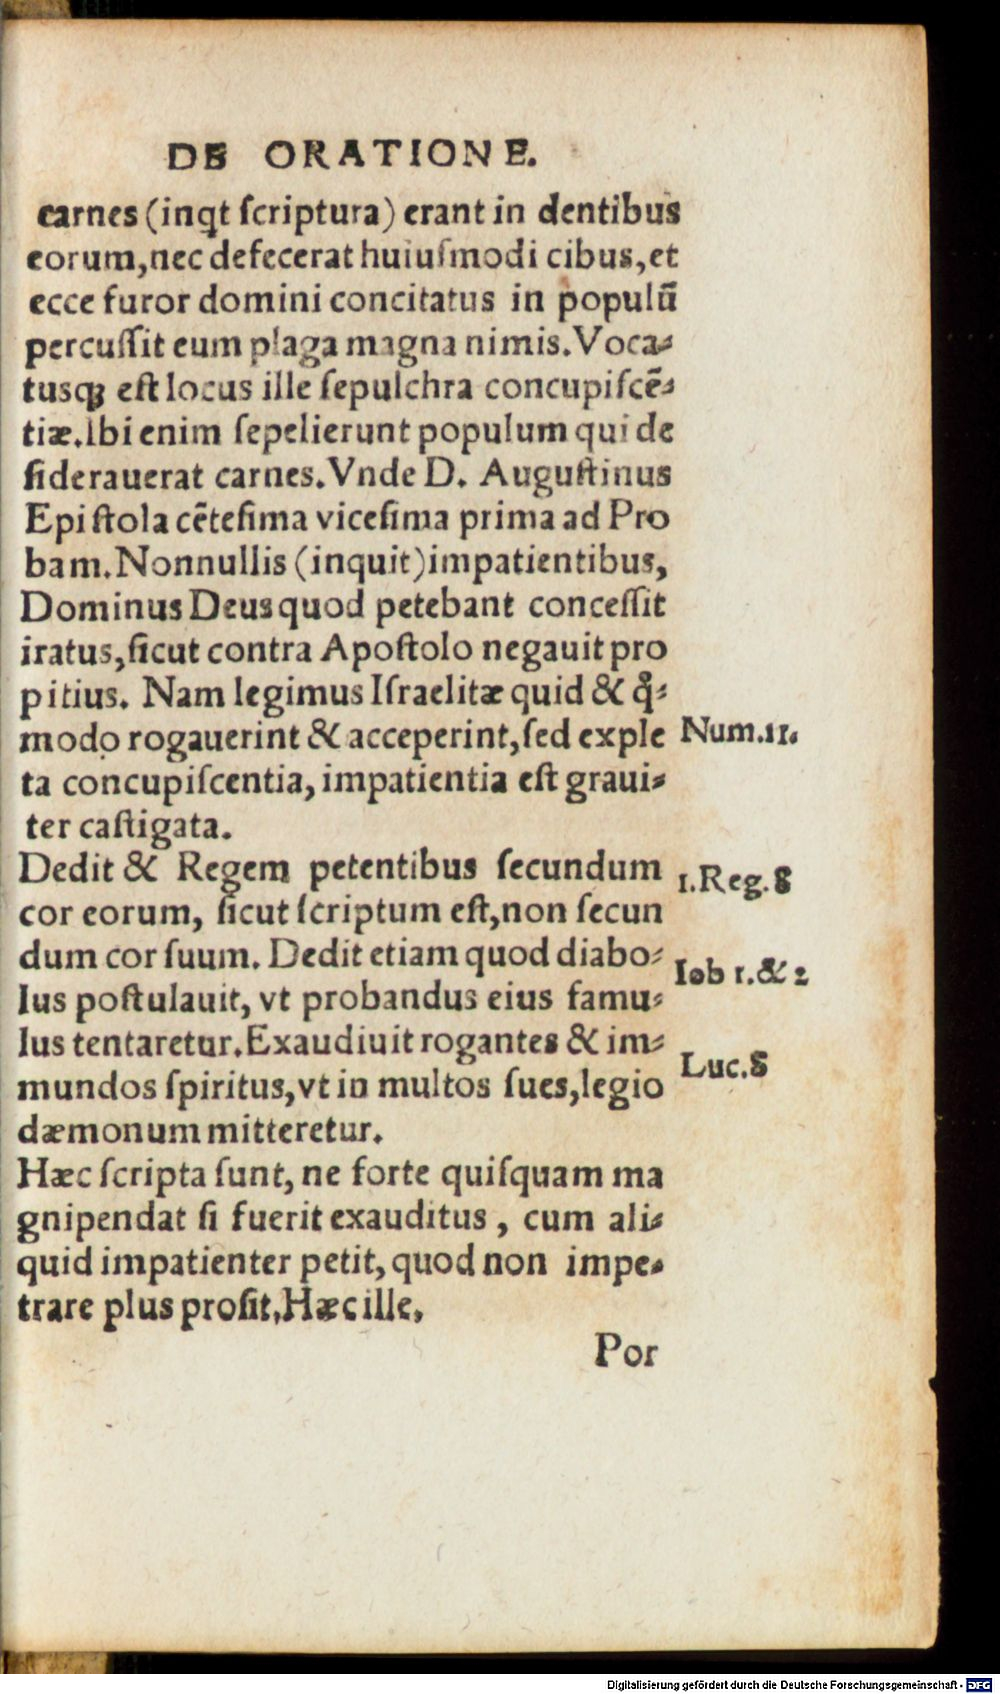 DE ORATIONE.
carnes (inqt ſcriptura) erant in dentibus
eorum, nec defecerat huiuſmodi cibus, et
ecce furor domini concitatus in populū
percuſſit eum plaga magna nimis. Voca⸗
tusqꝫ eſt locus ille ſepulchra concupiſcē⸗
tiæ. Ibi enim ſepelierunt populum qui de
ſiderauerat carnes. Vnde D. Auguſtinus
Epiſtola cēteſima viceſima prima ad Pro
bam. Nonnullis (inquit) impatientibus,
Dominus Deus quod petebant conceſſit
iratus, ſicut contra Apoſtolo negauit pro
pitius. Nam legimus Iſraelitæ quid & q̊⸗
modo rogauerint & acceperint, ſed exple
Num.11.
ta concupiſcentia, impatientia eſt graui⸗
ter caſtigata.
Dedit & Regem petentibus ſecundum
1.Reg.8
cor eorum, ſicut ſcriptum eſt, non ſecun
dum cor ſuum. Dedit etiam quod diabo⸗
Iob 1.& 2
lus poſtulauit, vt probandus eius famu⸗
lus tentaretur. Exaudiuit rogantes & im⸗
Luc.8
mundos ſpiritus, vt in multos ſues, legio
dæmonum mitteretur.
Hæc ſcripta ſunt, ne forte quiſquam ma
gnipendat ſi fuerit exauditus, cum ali⸗
quid impatienter petit, quod non impe⸗
trare plus proſit, Hæc ille,
Por
Digitalisierung gefördert durch die Deutsche Forschungsgemeinschaft - DFG